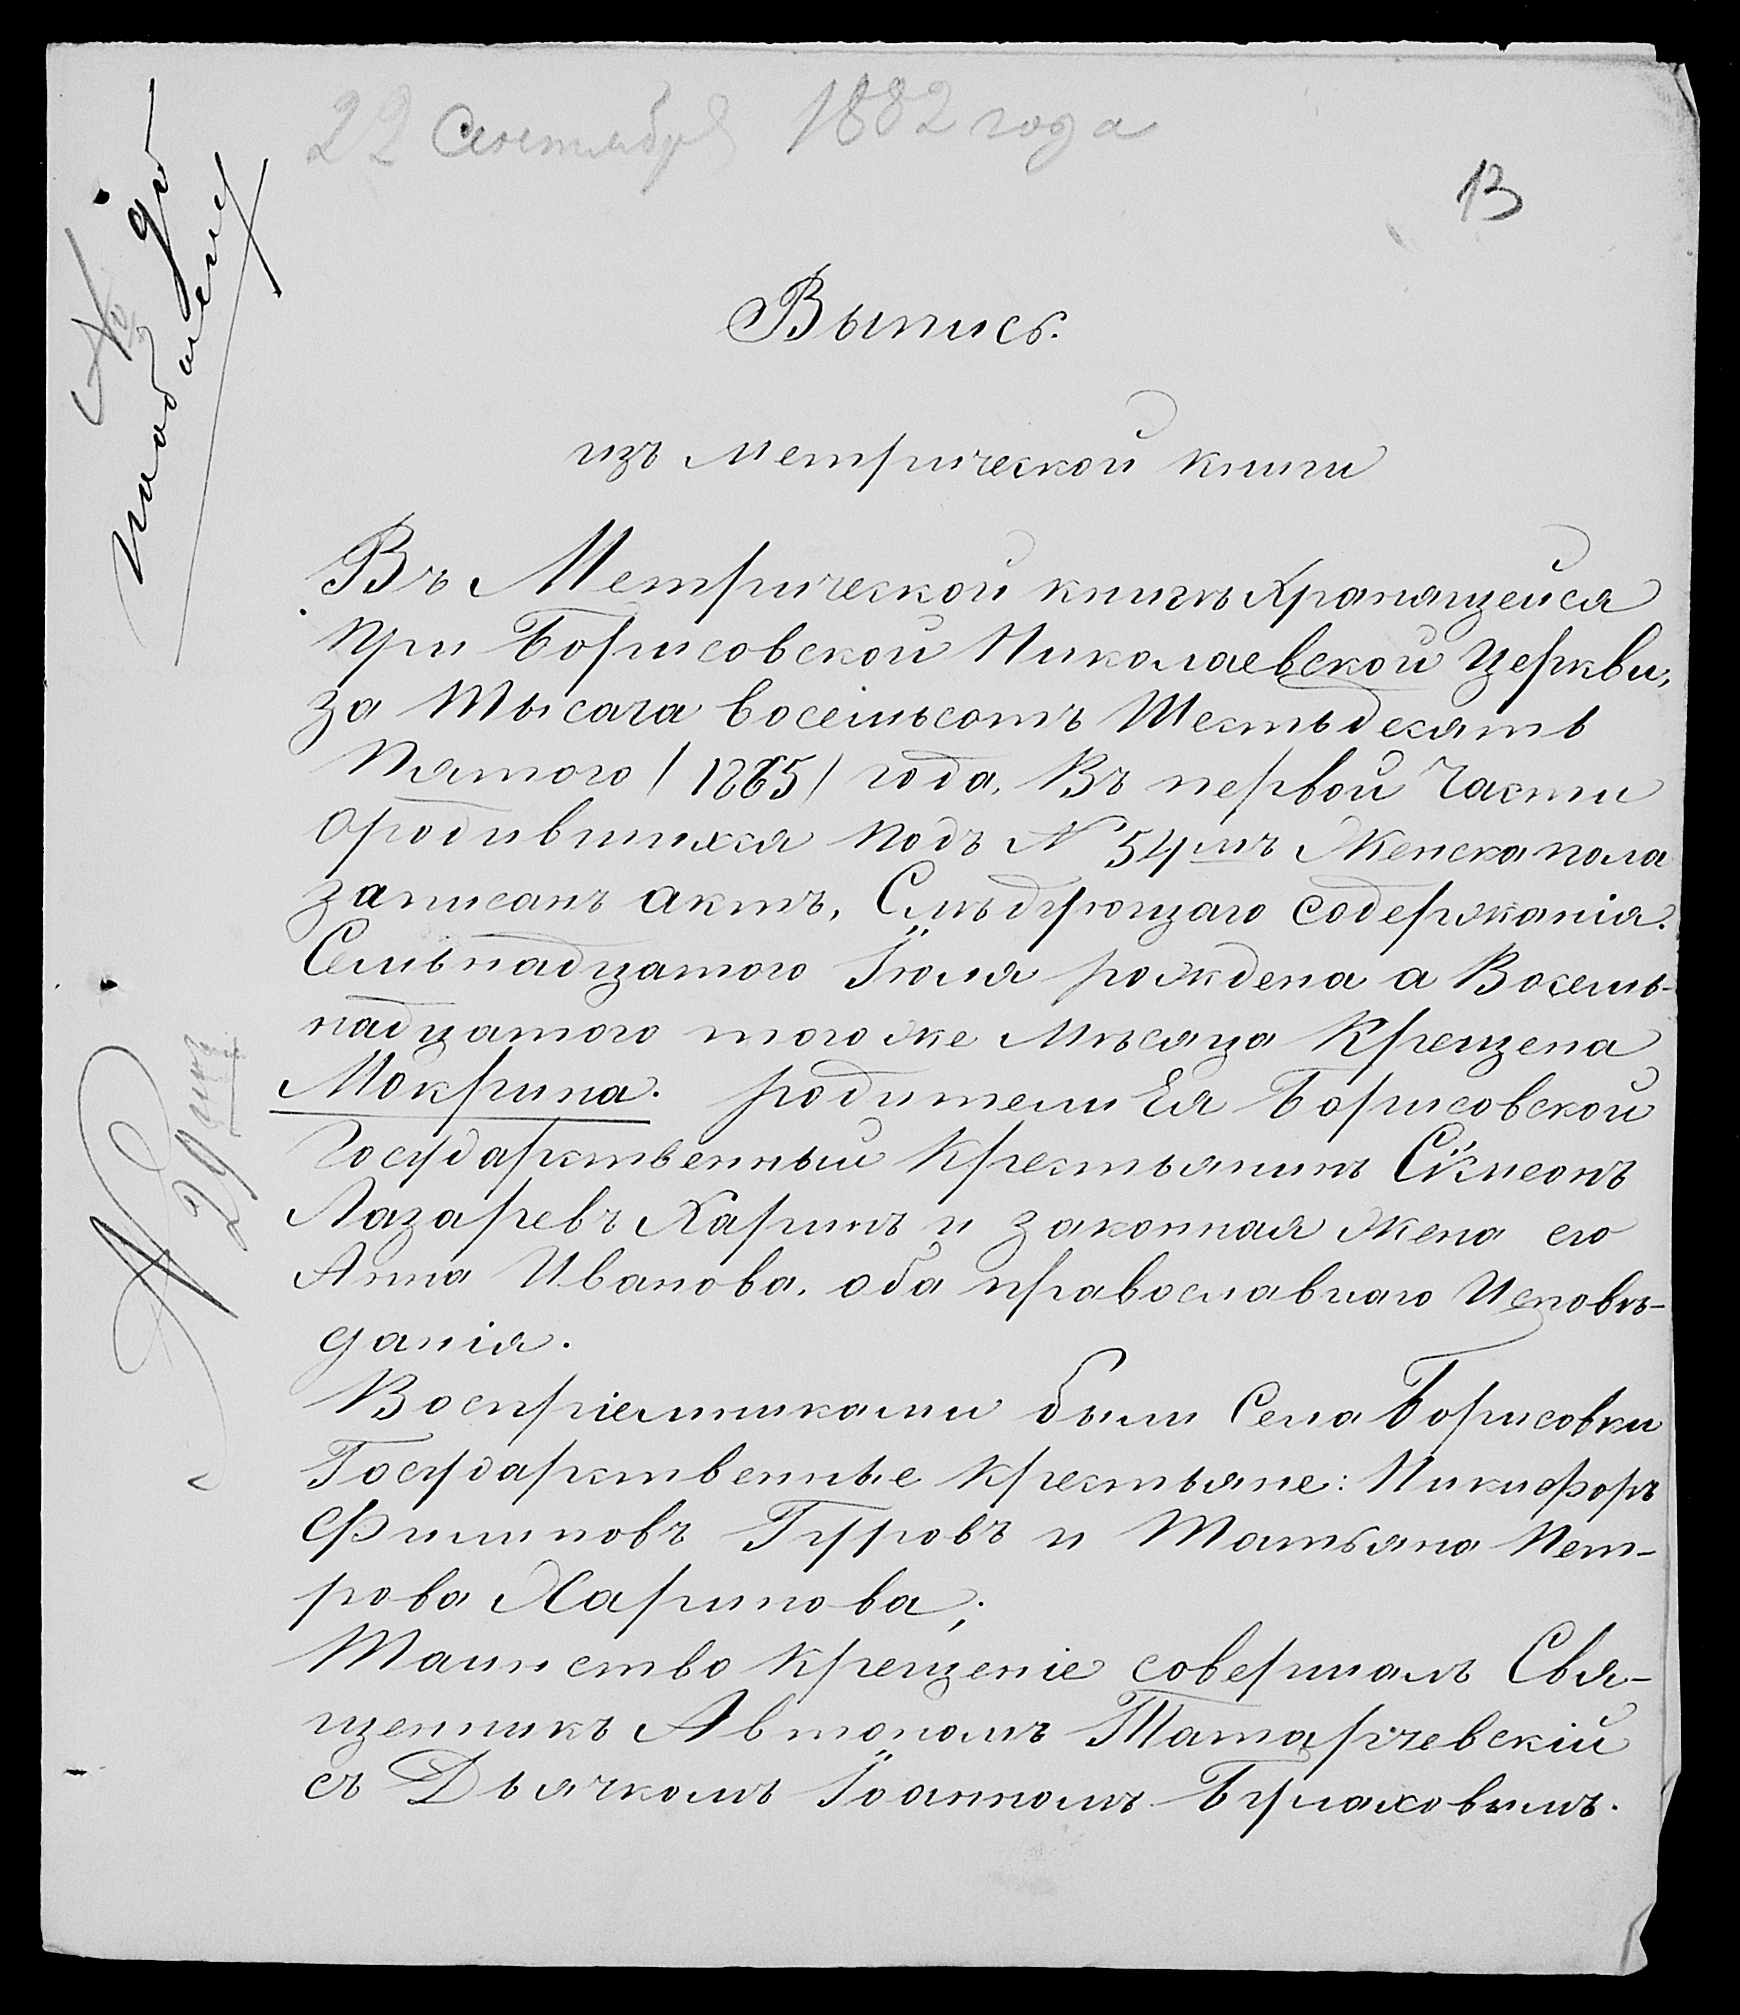 22 Сентября 1882 года
13
Выпись.
изъ Метрической книги
Въ Метрической книгѣ хранящейся
при Борисовской Николаевской Церкви,
за Тысяча восемьсотъ Шестьдесятъ
Пятого (1865) года, Въ первой Части
ородившихся подъ № 54мъ Женска пола
записанъ актъ, Слѣдующаго содержанія.
Семьнадцатого Іюля рождена а Восемь-
надцатого того же Мѣсяца Крещена
Мокрина. родители Ея Борисовской
Государственный Крестьянинъ Сімеонъ
Лазаревъ Харинъ и законная жена его
Анна Иванова, оба православнаго Исповѣ-
данія.
Воспріемниками были Села Борисовки
Государственные крестьяне: Никифоръ
Филиповъ Гуровъ и Татьяна Пет-
рова Харинова;
Таинство крещеніе совершалъ Свя-
щенникъ Автономъ Татарчевскій
съ Дьячкомъ Іоанномъ Булаховымъ.